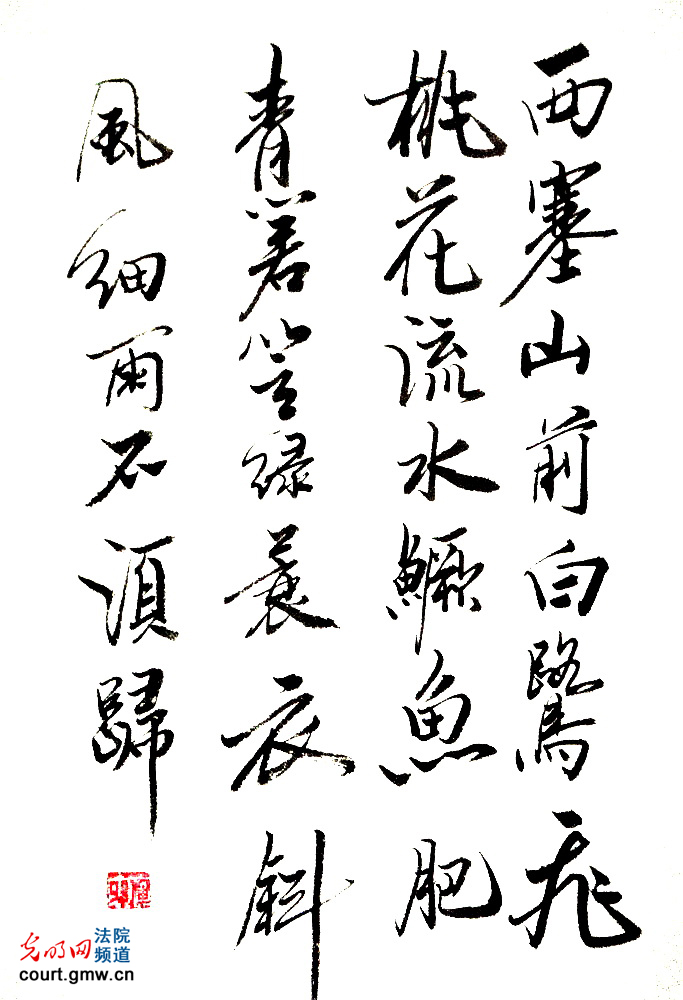 西塞山前白鷺飛
桃花流水鱖魚肥
青箬笠綠蓑衣斜
風細雨不須歸
光明网
法院
频道
court.gmw.cn